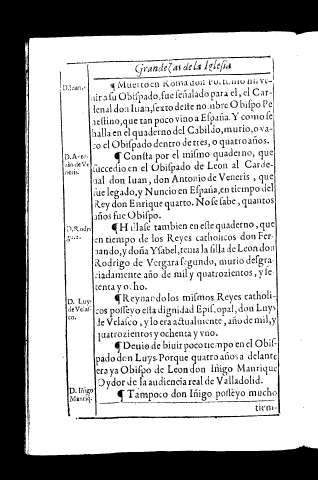 Grandezas de la Iglesia
D. Iuan.
¶ Muerto en Roma don
nir a su Obispado, fue señalado para el, el Car-
denal don Iuan, sexto deste nombre Obispo Pe
nestino, que tan poco vino a España. Y como se
halla en el quaderno del Cabildo, murio, o va-
co el Obispado dentro de tres, o quatro años.
D. Anto
nio de Ve
neris.
¶ Consta por el mismo quaderno, que
succedio en el Obispado de Leon al Carde-
nal don Iuan, don Antonio de Veneris, que
fue legado, y Nuncio en España, en tiempo del
Rey don Enrique quarto. No se sabe, quantos
años fue Obispo.
D. Rodri
¶ Hallase tambien en este quaderno, que
en tiempo de los Reyes catholicos don Fer-
nando, y doña Ysabel, tenia la silla de Leon don
Rodrigo de Vergara segundo, murio desgra-
ciadamente año de mil y quatrozientos, y se-
tenta y ocho.
D. Luys
de Velas
co.
¶ Reynando los mismos Reyes catholi-
cos posseyo esta dignidad Episcopal, don Luys
de Velasco, y lo era actualmente, año de mil, y
quatrozientos y ochenta y uno.
¶ Deuio de biuir poco tiempo en el Obis-
pado don Luys. Porque quatro años a delante
era ya Obispo de Leon don Iñigo Manrique
Oydor de la audiencia real de Valladolid.
D. Iñigo
Manriq.
¶ Tampoco don Iñigo posseyo mucho
tiem-